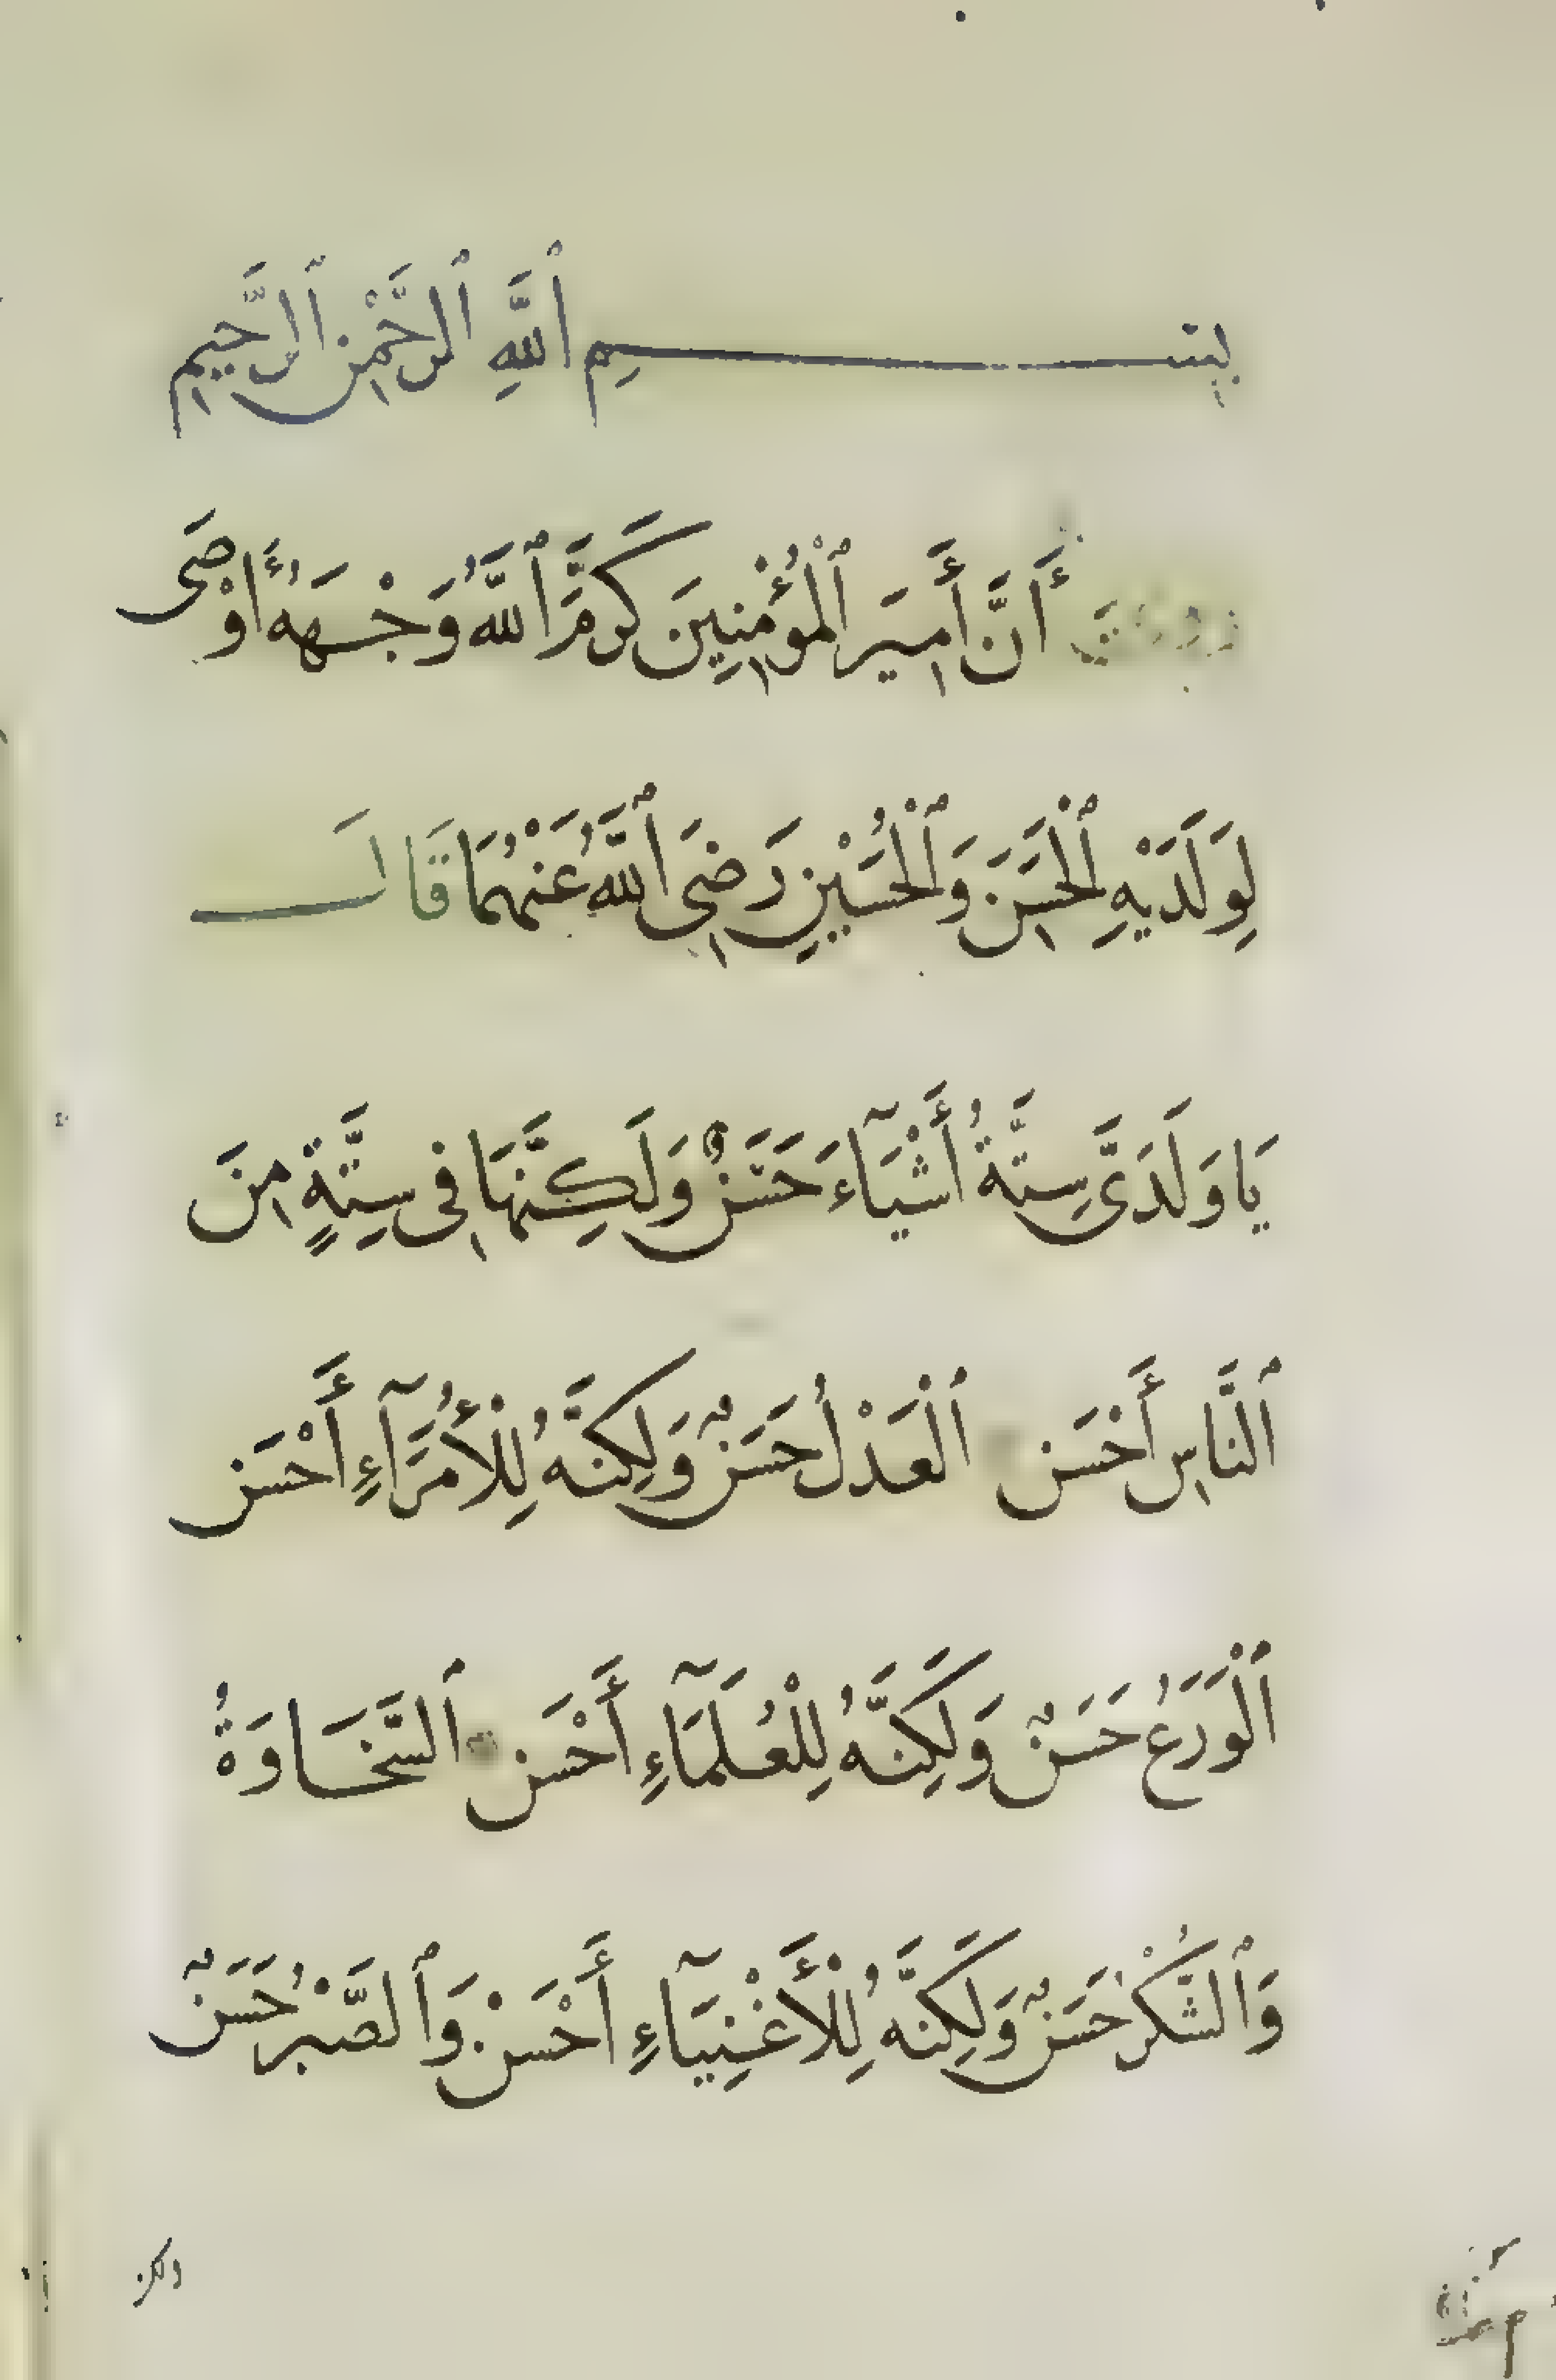 بِسْمِ ٱللَّهِ ٱلرَّحْمٰنِ ٱلرَّحِيمِ
أَنَّ أَمِيَر ٱلْمُؤْمِنِينَ كَرَّمَ ٱللَّهُ وَجْهَهُ أَوْصَى
لِوَلَدَيْهِ ٱلْحَسَنِ وَٱلْحُسَيْنِ رَضِىَ ٱللَّهُ عَنْهُمَا قَالَ
يَا وَلَدَىَّ سِتَّةُ أَشْيَآءَ حَسَنٌ وَلَكِنَّهَا فِى سِتَّةٍ مِنَ
ٱلنَّاسِ أَحْسَن ٱلْعَدْلُ حَسَنٌ وَلَكِنَّهُ لِلْأُمَرَآءِ أَحْسَن
ٱلْوَرَعُ حَسَنٌ وَلَكِنَّهُ لِلْعُلَمَآءِ أَحْسَن ٱلسَّخَاوَةُ
وَٱلشُّكْرُ حَسَنٌ وَلَكِنَّهُ لِلْأَغْنِيَآءِ أَحْسَنْ وَٱلصَّبْرُ حَسَنٌ
ولكن